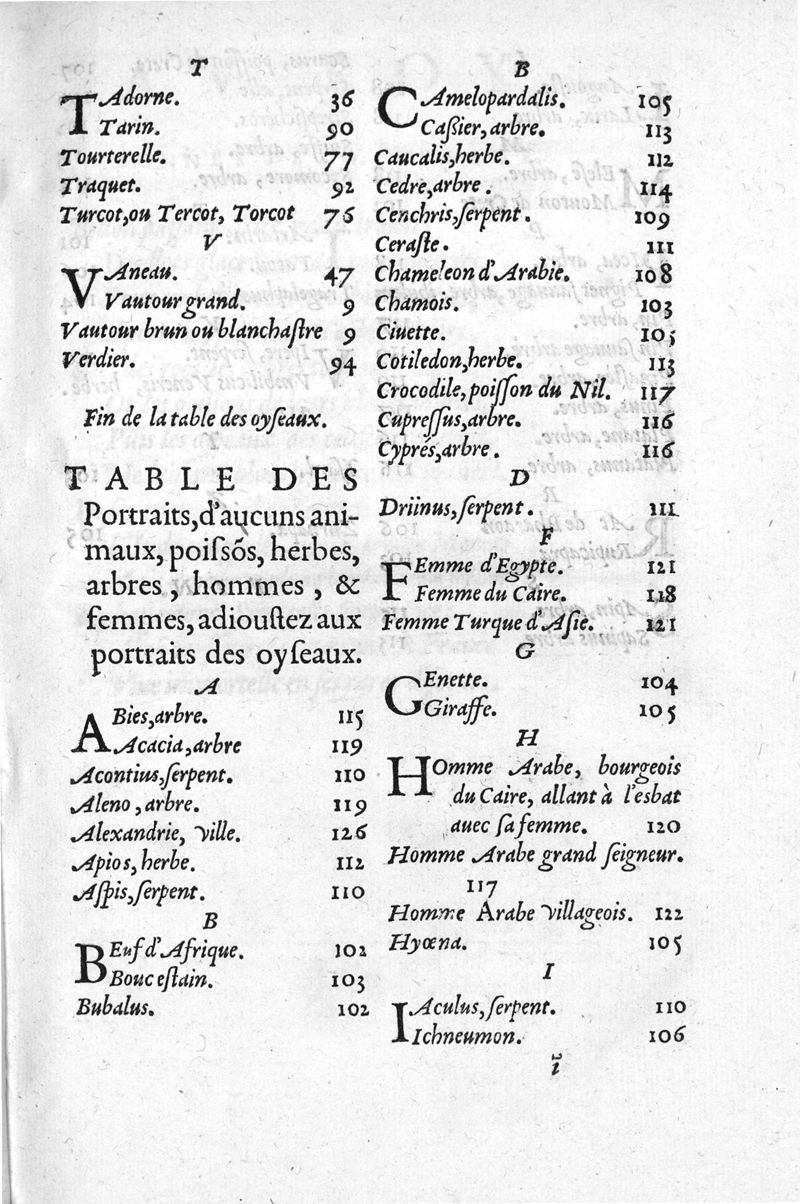 T
TAdorne. 36
Tarin. 90
Tourterelle. 77
Traquet. 92
Turcot,ou Tercot, Torcot 76
V
VAneau. 47
Vautour grand. 9
Vautour brun ou blanchaſtre 9
Verdier. 94
Fin de la table des oyſeaux.
TABLE DES
Portraits,d'aucuns ani-
maux, poiſsõs, herbes,
arbres, hommes, &
femmes, adiouſtez aux
portraits des oyſeaux.
A
ABies,arbre. 115
Acacia,arbre 119
Acontius,ſerpent. 110
Aleno, arbre. 119
Alexandrie, ville. 126
Apios, herbe. 112
Aſpis,ſerpent. 110
B
BEuf d'Afrique. 102
Bouc eſtain. 103
Bubalus. 102
B
CAmelopardalis. 105
Caßier, arbre. 113
Caucalis,herbe. 112
Cedre,arbre. 114
Cenchris,ſerpent. 109
Ceraſte. 111
Chameleon d'Arabie. 108
Chamois. 103
Ciuette. 105
Cotiledon,herbe. 113
Crocodile,poiſſon du Nil. 117
Cupreſſus,arbre. 116
Cyprés,arbre. 116
D
Driinus,ſerpent. 111
F
FEmme d'Egypte. 121
Femme du Caire. 118
Femme Turque d'Aſie. 121
G
GEnette. 104
Giraffe. 105
H
HOmme Arabe, bourgeois
du Caire, allant à l'esbat
auec ſa femme. 120
Homme Arabe grand ſeigneur.
117
Homme Arabe villageois. 122
Hyœna. 105
I
IAculus,ſerpent. 110
Ichneumon. 106
ĩ